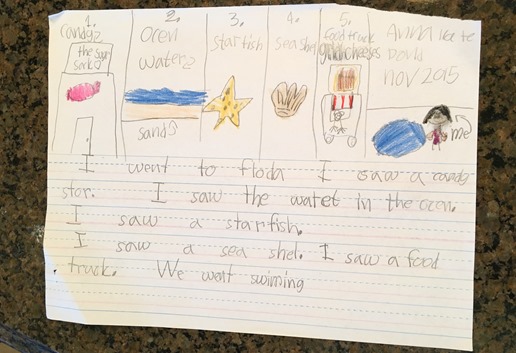 1.
candy
the
2.
Oren
water
sand
3.
starfish
4.
sea shel
5.
food truck
grildcheeses
Anna
nov 2015
me
I went to floda I saw a candy
stor. I saw the watet in the oren.
I saw a starfish.
I saw a sea shel. I saw a food
truck. We went swiming